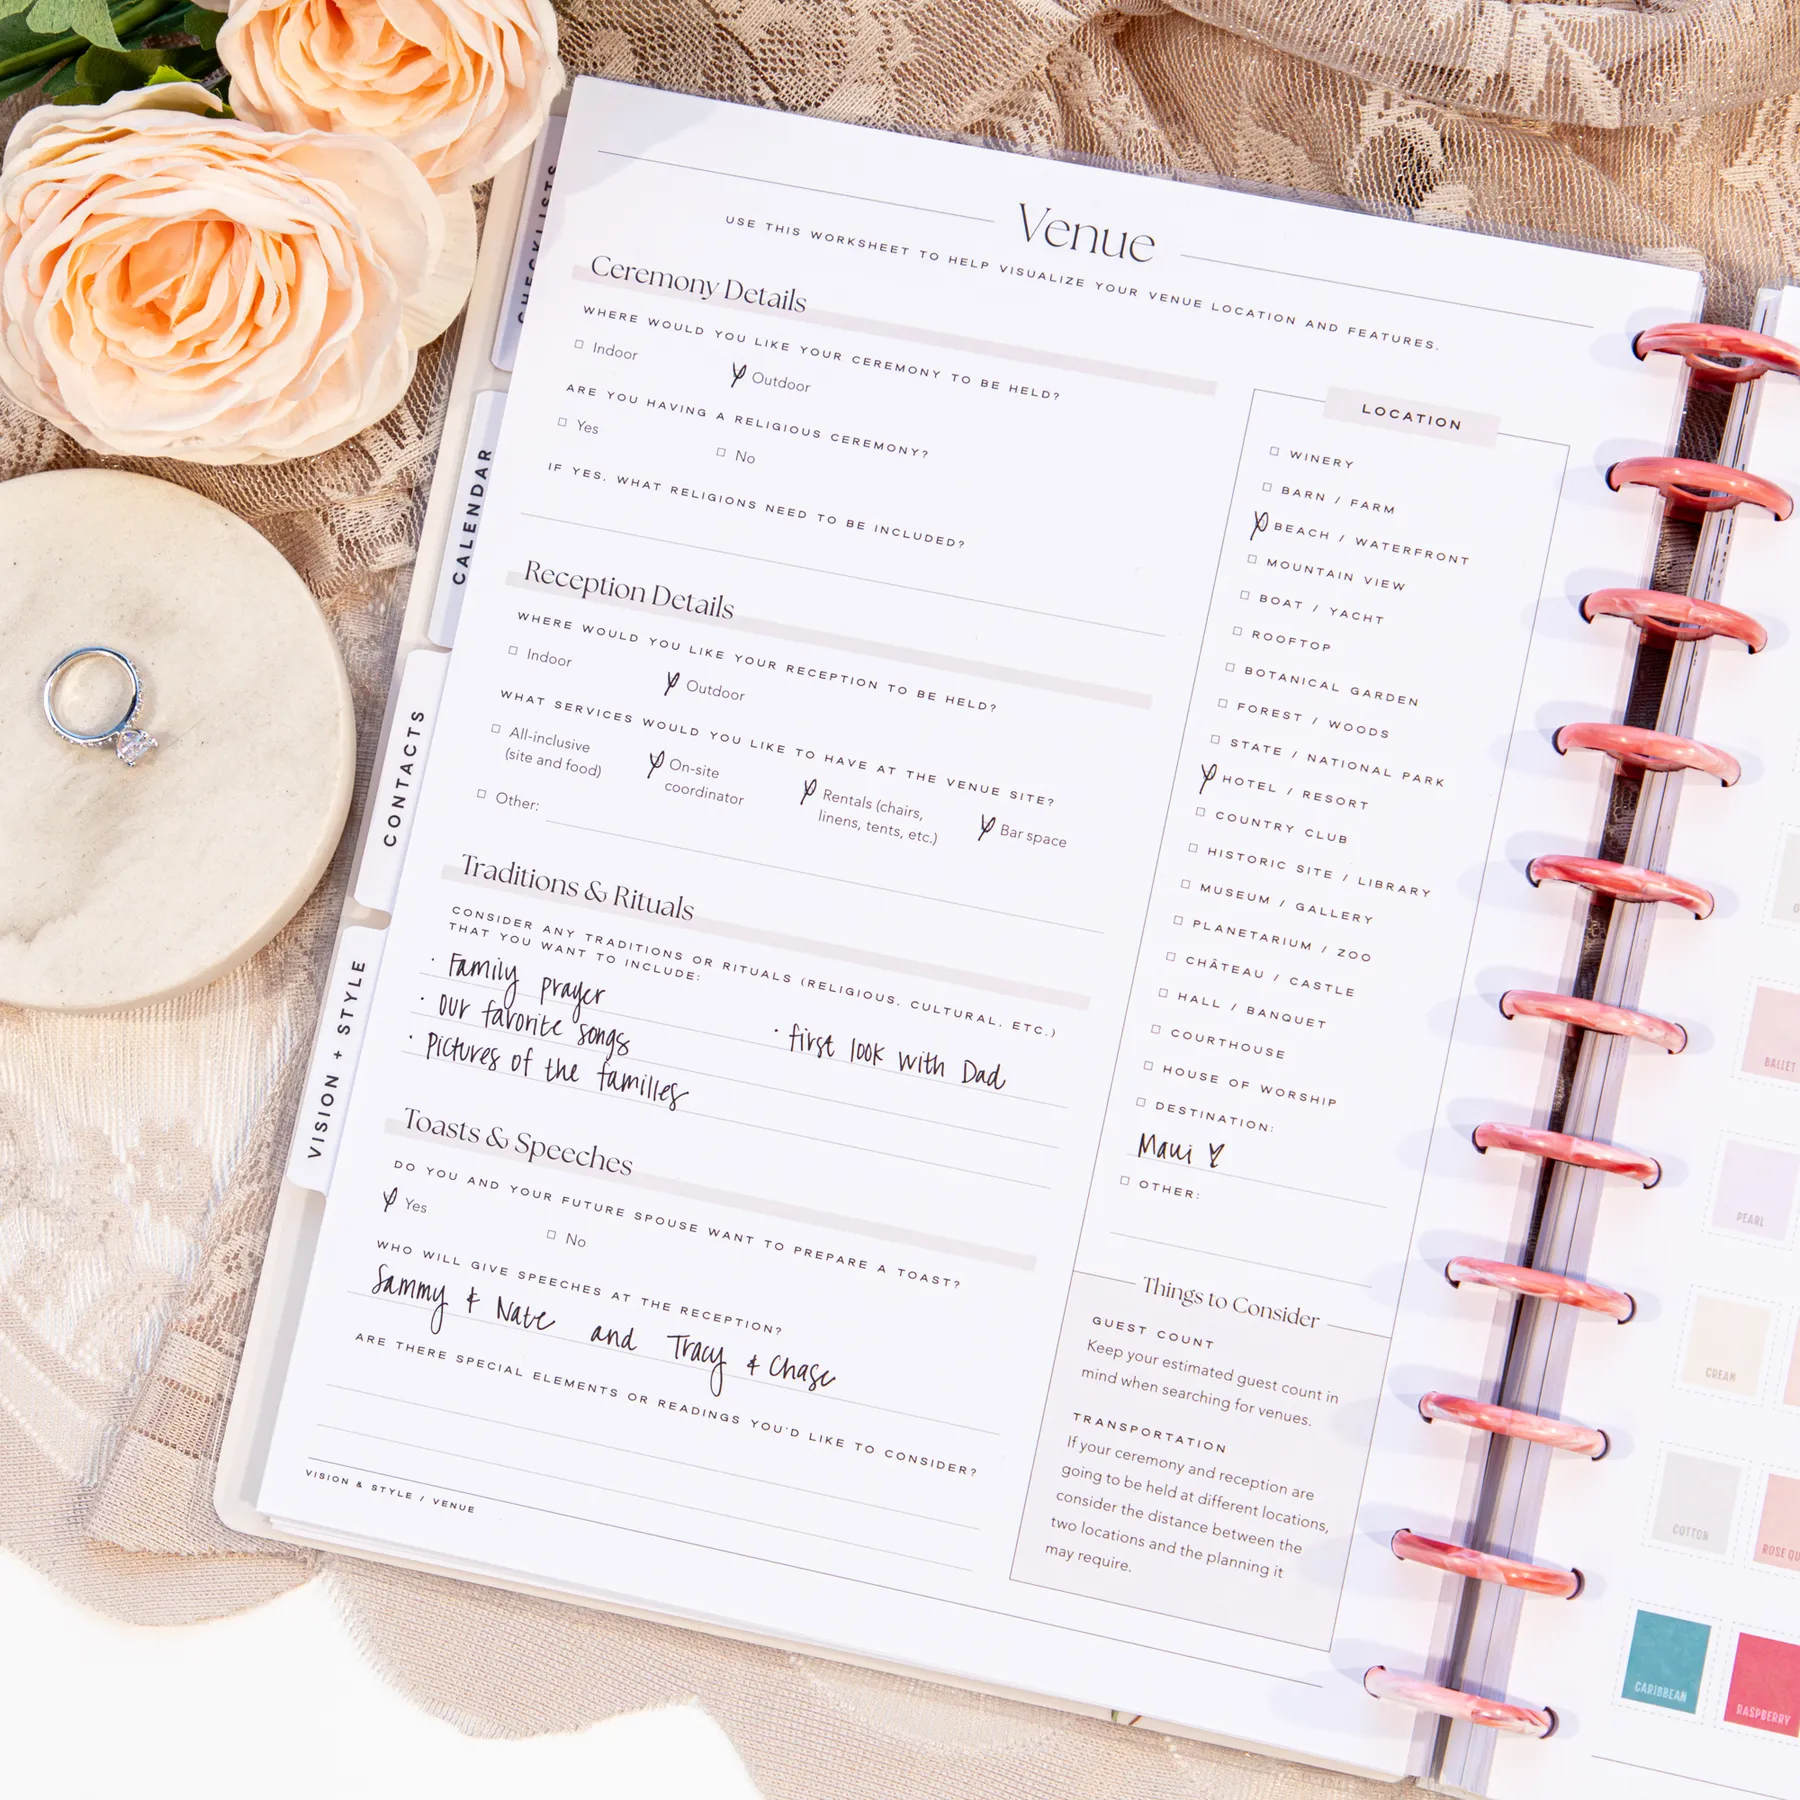 CHECKLISTS
CALENDAR
CONTACTS
VISION + STYLE
Venue
USE THIS WORKSHEET TO HELP VISUALIZE YOUR VENUE LOCATION AND FEATURES.
Ceremony Details
WHERE WOULD YOU LIKE YOUR CEREMONY TO BE HELD?
Indoor Outdoor
ARE YOU HAVING A RELIGIOUS CEREMONY?
Yes No
IF YES, WHAT RELIGIONS NEED TO BE INCLUDED?
Reception Details
WHERE WOULD YOU LIKE YOUR RECEPTION TO BE HELD?
Indoor Outdoor
WHAT SERVICES WOULD YOU LIKE TO HAVE AT THE VENUE SITE?
All-inclusive On-site Rentals (chairs, Bar space
(site and food) coordinator linens, tents, etc.)
Other:
Traditions & Rituals
CONSIDER ANY TRADITIONS OR RITUALS (RELIGIOUS, CULTURAL, ETC.)
THAT YOU WANT TO INCLUDE:
· Family prayer
· our favorite songs · first look with Dad
· pictures of the families
Toasts & Speeches
DO YOU AND YOUR FUTURE SPOUSE WANT TO PREPARE A TOAST?
Yes No
WHO WILL GIVE SPEECHES AT THE RECEPTION?
Sammy & Nate and Tracy & Chase
ARE THERE SPECIAL ELEMENTS OR READINGS YOU'D LIKE TO CONSIDER?
VISION & STYLE / VENUE
LOCATION
WINERY
BARN / FARM
BEACH / WATERFRONT
MOUNTAIN VIEW
BOAT / YACHT
ROOFTOP
BOTANICAL GARDEN
FOREST / WOODS
STATE / NATIONAL PARK
HOTEL / RESORT
COUNTRY CLUB
HISTORIC SITE / LIBRARY
MUSEUM / GALLERY
PLANETARIUM / ZOO
CHÂTEAU / CASTLE
HALL / BANQUET
COURTHOUSE
HOUSE OF WORSHIP
DESTINATION:
Maui
OTHER:
Things to Consider
GUEST COUNT
Keep your estimated guest count in
mind when searching for venues.
TRANSPORTATION
If your ceremony and reception are
going to be held at different locations,
consider the distance between the
two locations and the planning it
may require.
BALLET
PEARL
CREAM
COTTON
ROSE QU
CARIBBEAN
RASPBERRY